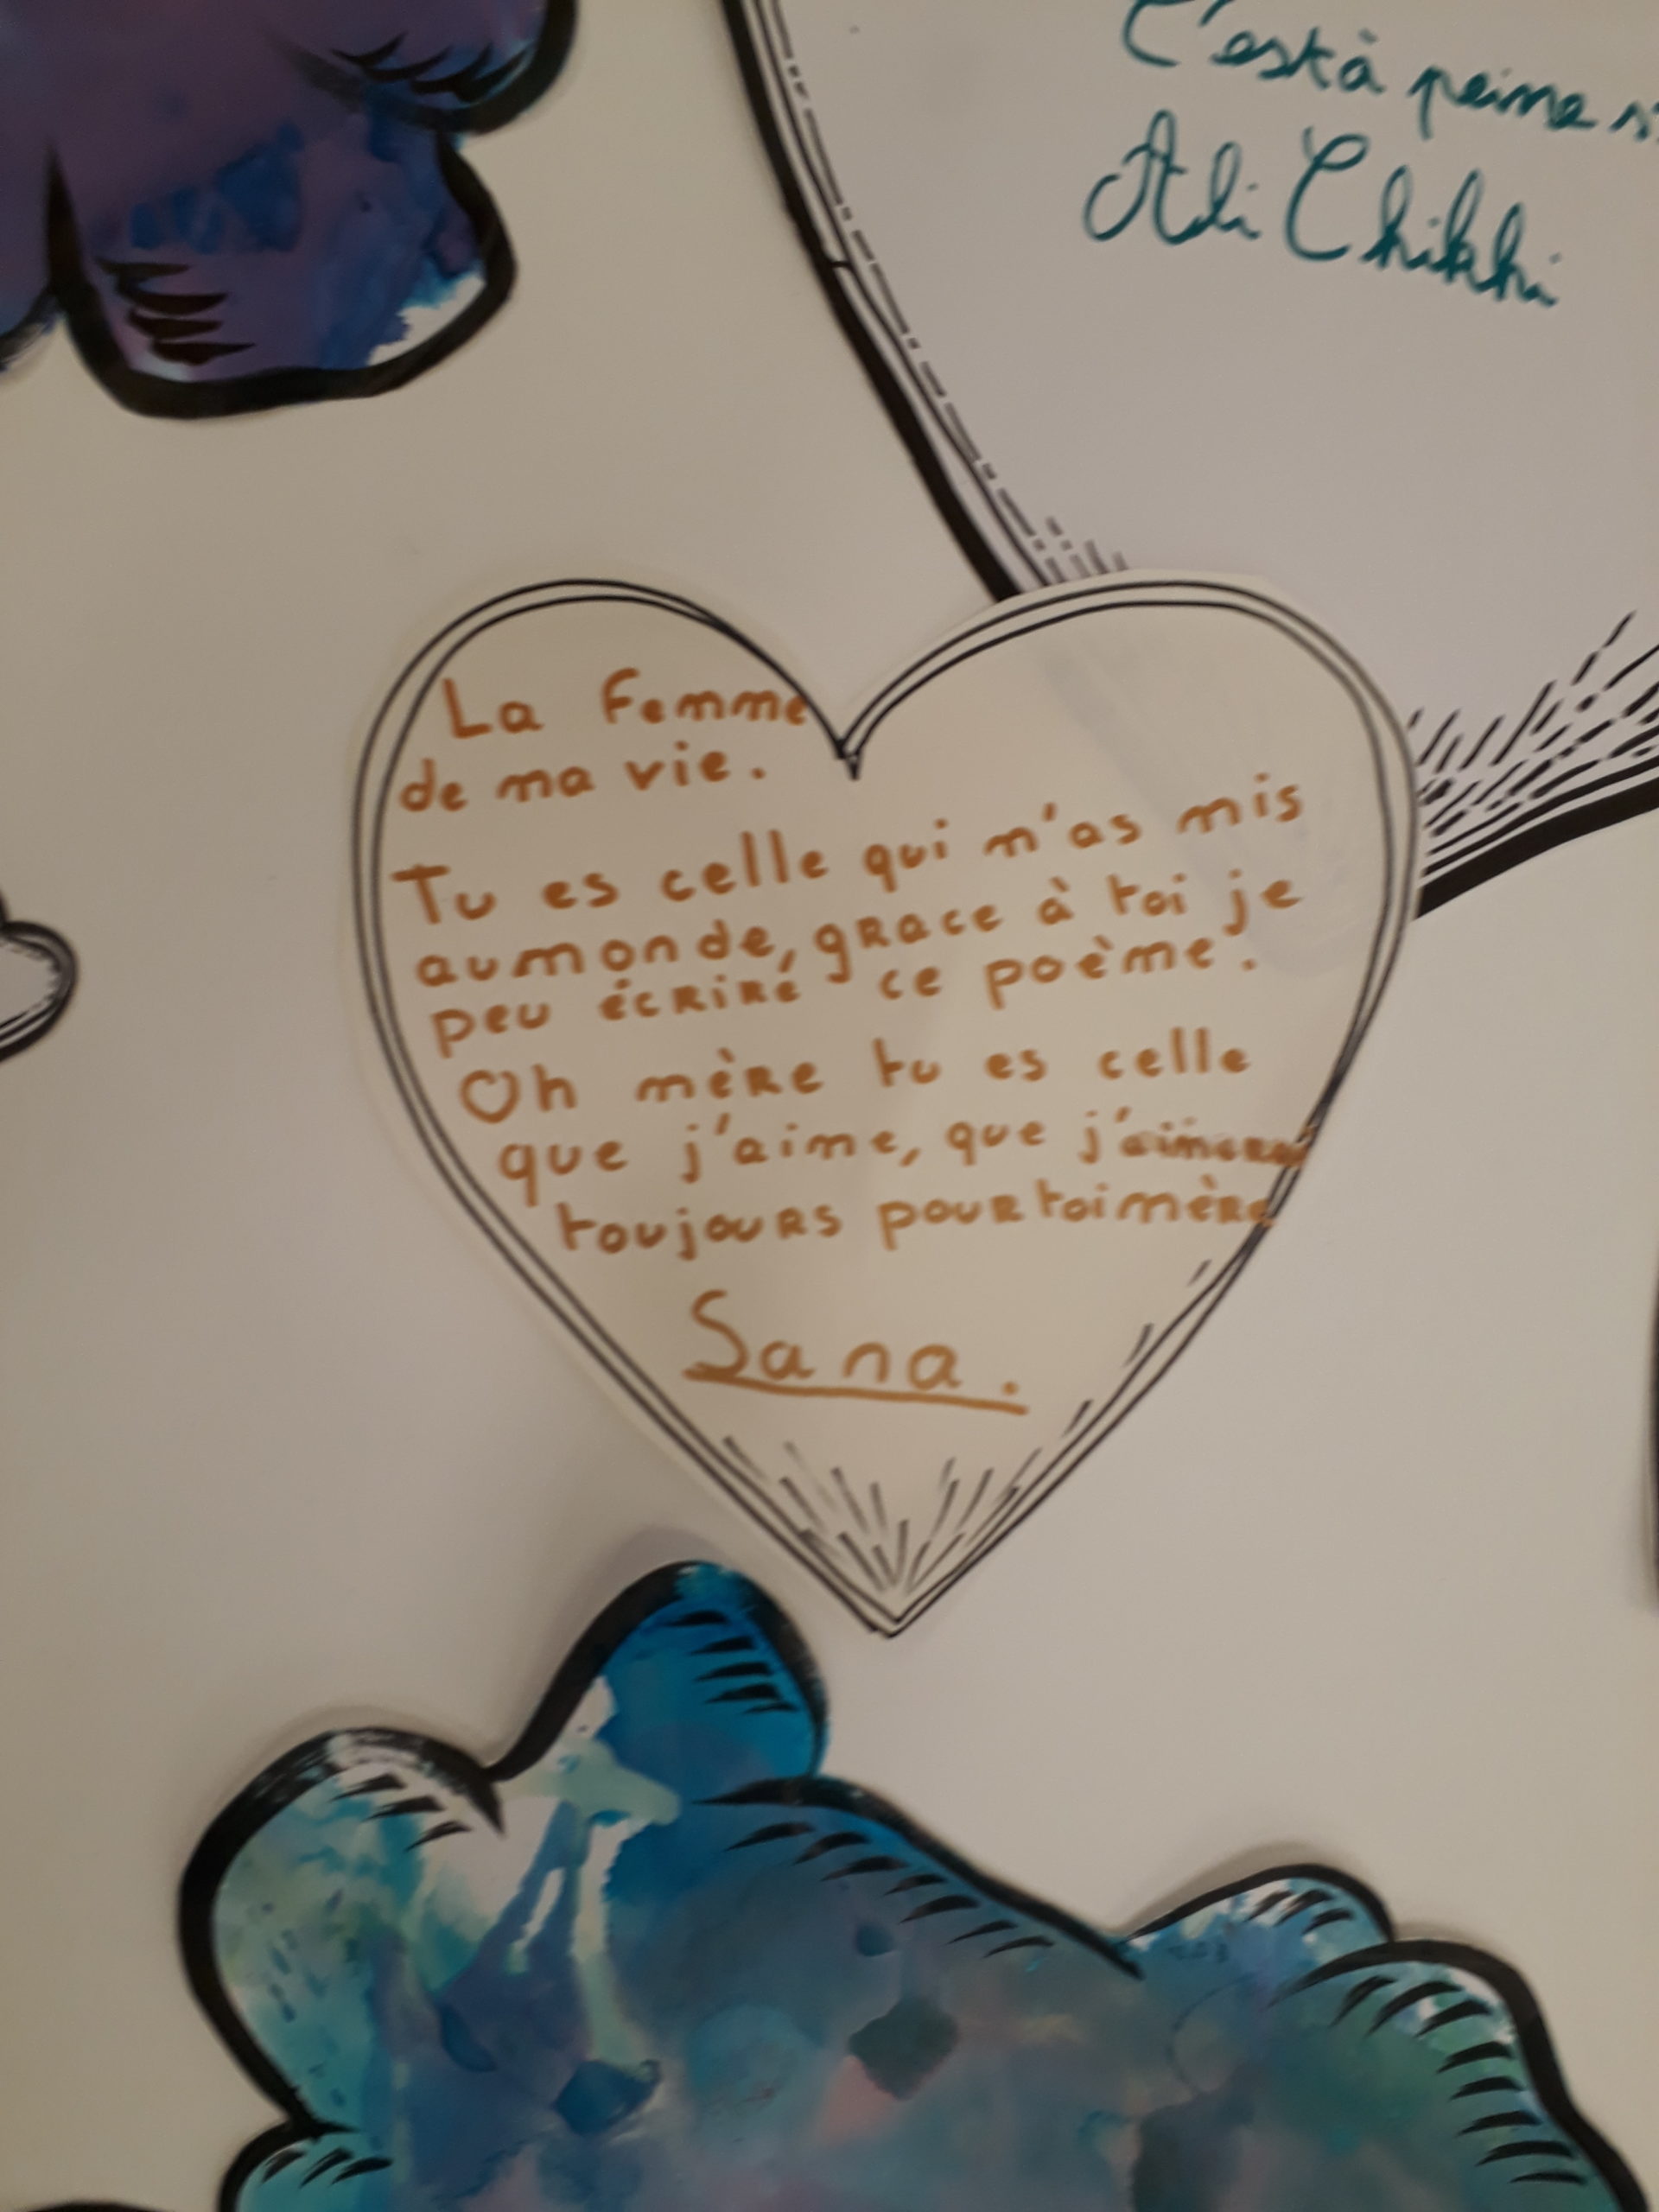 C'est à peine
Ali Chikhi
La Femme
de ma vie.
Tu es celle qui m'as mis
au monde, grace à toi je
peu écrire ce poème.
Oh mère tu es celle
que j'aime, que j'aimerai
toujours pour toi mère
Sana.